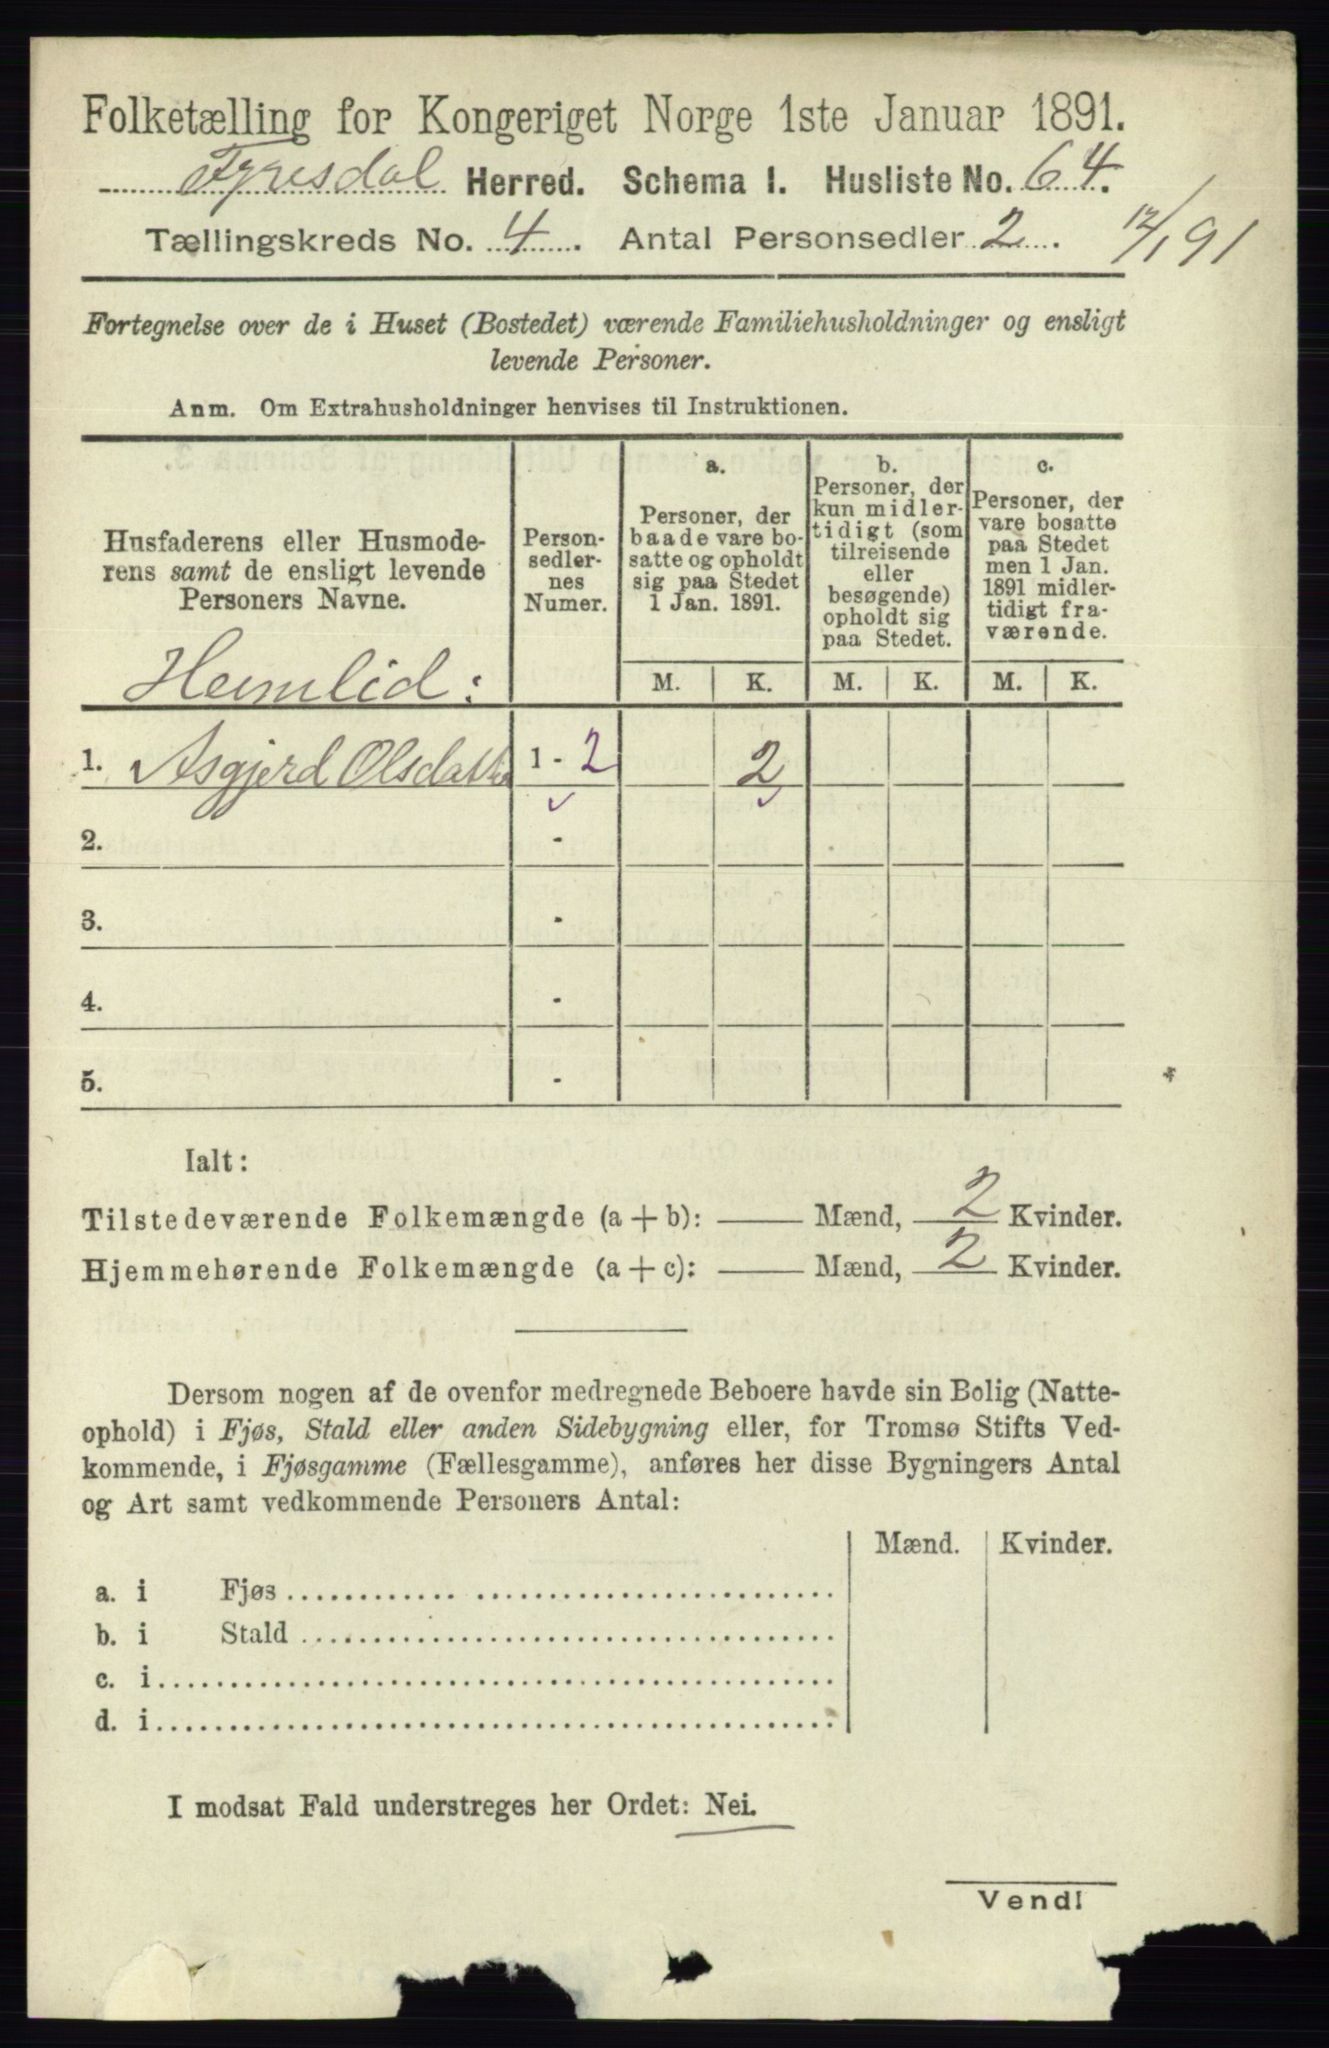 Folketælling for Kongeriget Norge 1ste Januar 1891.
Fyresdal Herred. Schema I. Husliste No. 64.
Tællingskreds No. 4. Antal Personsedler 2.
12/1 91
Fortegnelse over de i Huset (Bostedet) værende Familiehusholdninger og ensligt
levende Personer.
Anm. Om Extrahusholdninger henvises til Instruktionen.
Husfaderens eller Husmode-
rens samt de ensligt levende
Personers Navne.
Person-
sedler-
nes
Numer.
a.
Personer, der
baade vare bo-
satte og opholdt
sig paa Stedet
1 Jan. 1891.
b.
Personer, der
kun midler-
tidigt (som
tilreisende
eller
besøgende)
opholdt sig
paa Stedet.
c.
Personer, der
vare bosatte
paa Stedet
men 1 Jan.
1891 midler-
tidigt fra-
værende.
Heimlid:
M. K. M. K. M. K.
1. Asgjerd Olsdatter 1 - 2 2
2. -
3. -
4. -
5. -
Ialt:
Tilstedeværende Folkemængde (a + b): — Mænd, 2 Kvinder.
Hjemmehørende Folkemængde (a + c): — Mænd, 2 Kvinder.
Dersom nogen af de ovenfor medregnede Beboere havde sin Bolig (Natte-
ophold) i Fjøs, Stald eller anden Sidebygning eller, for Tromsø Stifts Ved-
kommende, i Fjøsgamme (Fællesgamme), anføres her disse Bygningers Antal
og Art samt vedkommende Personers Antal:
Mænd. Kvinder.
a. i Fjøs
b. i Stald
c. i
d. i
I modsat Fald understreges her Ordet: Nei.
Vend!